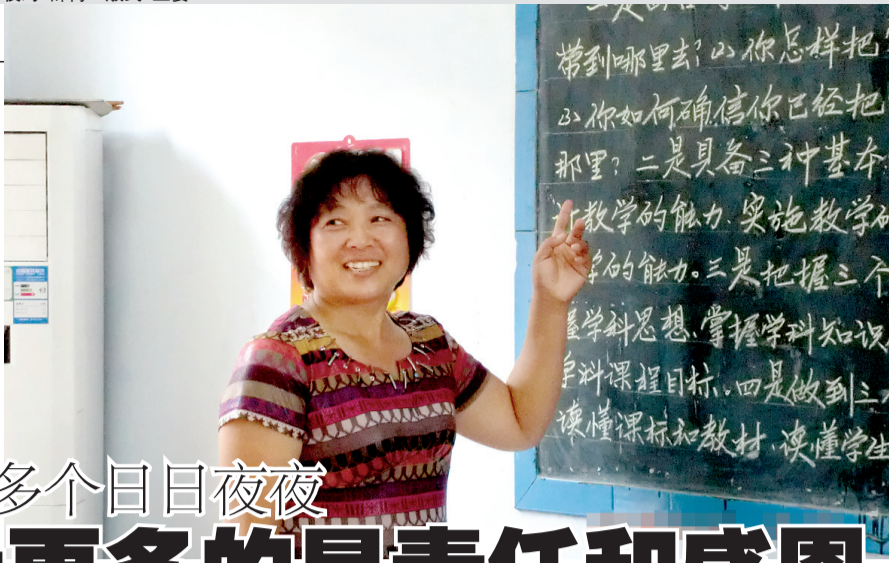 带到哪里去?2、你怎样把
3、你如何确信你已经把
那里?二是具备三种基本
教学的能力.实施教学
学的能力。三是把握三个
握学科思想、掌握学科知识
学科课程目标。四是做到三
读懂课标和教材、读懂学生
多个日日夜夜
更多的是责任和感恩